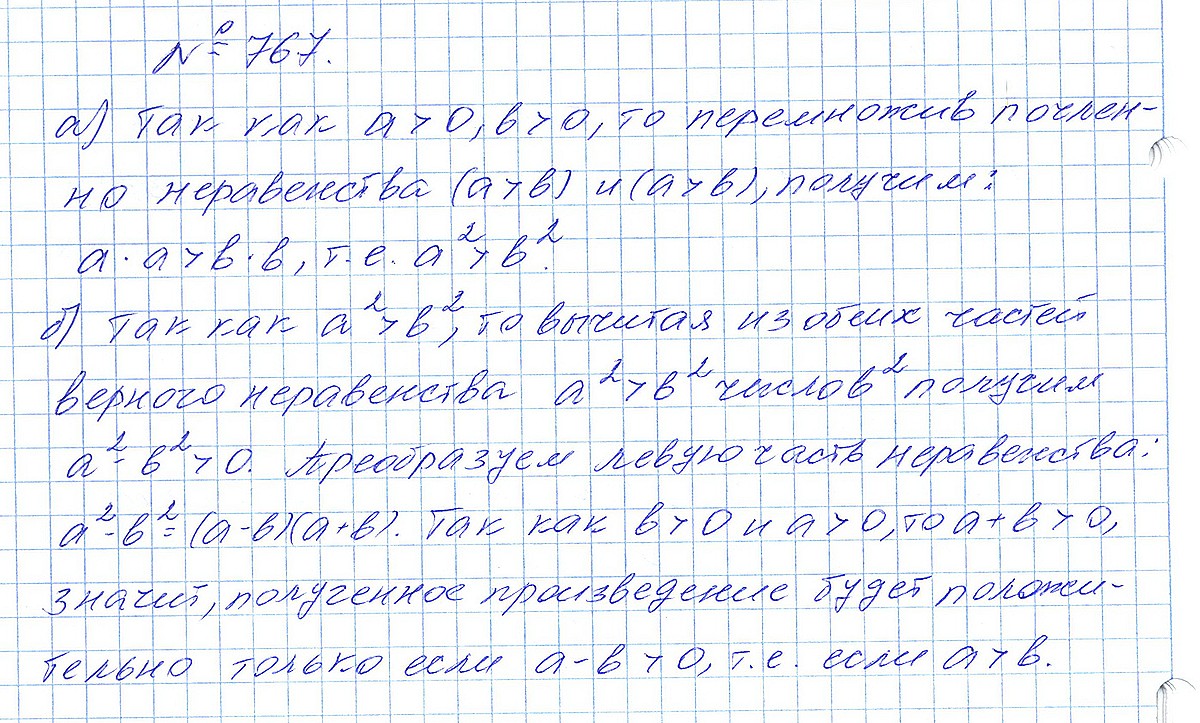 № 767.
а) Так как а > 0, в > 0, то перемножив почлен-
но неравенства (а > в) и (а > в), получим:
а · а > в · в, т.е. а² > в².
б) Так как а² > в², то вычитая из обеих частей
верного неравенства а² > в² число в² получим
а² - в² > 0. Преобразуем левую часть неравенства:
а² - в² = (а - в)(а + в). Так как в > 0 и а > 0, то а + в > 0,
значит, полученное произведение будет положи-
тельно только если а - в > 0, т.е. если а > в.